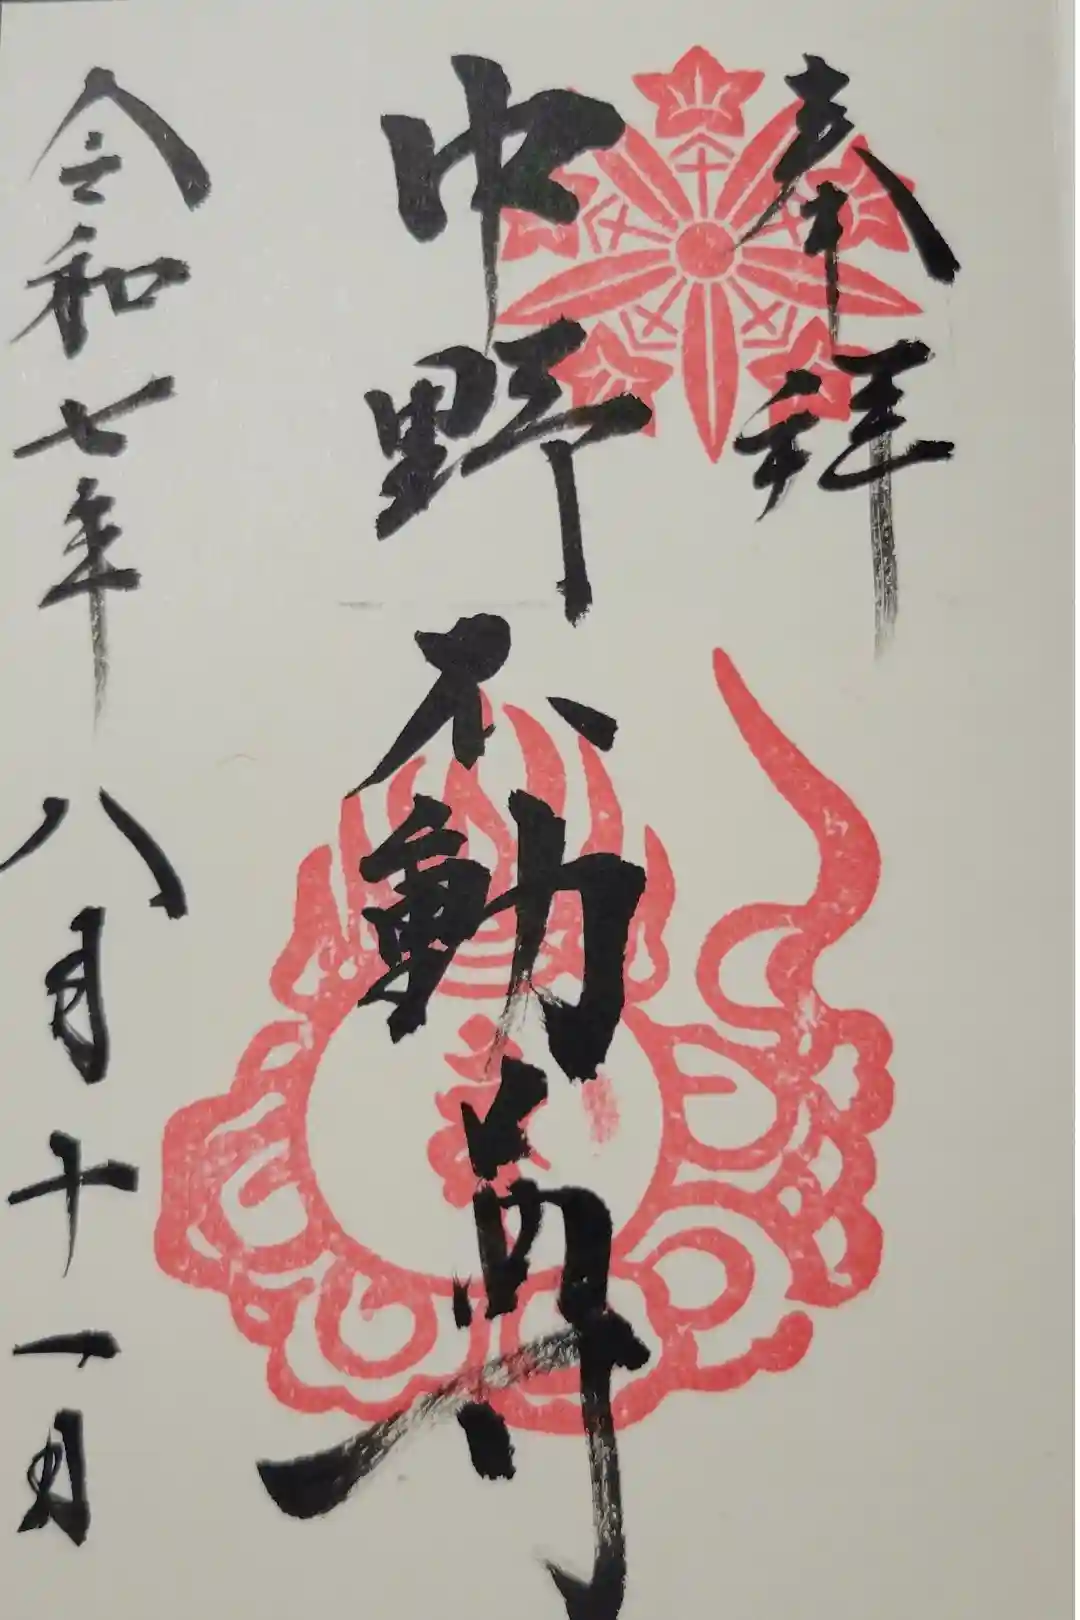 奉拝
中野不動尊
令和七年八月十一日